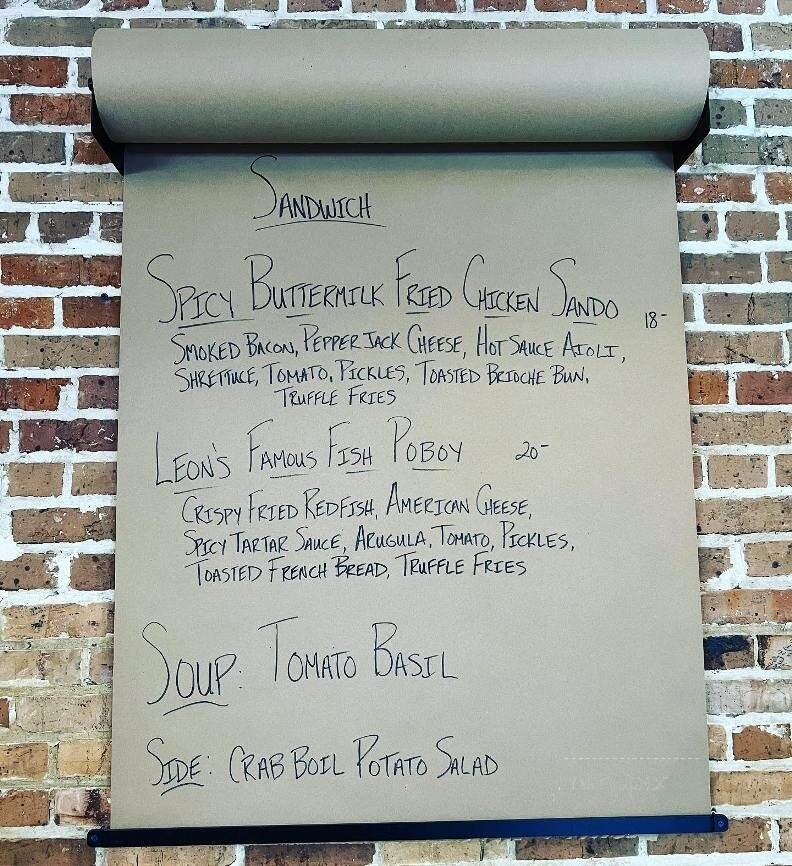 SANDWICH
SPICY BUTTERMILK FRIED CHICKEN SANDO 18-
SMOKED BACON, PEPPER JACK CHEESE, HOT SAUCE AIOLI,
SHRETTUCE, TOMATO, PICKLES, TOASTED BRIOCHE BUN,
TRUFFLE FRIES
LEON'S FAMOUS FISH POBOY 20-
CRISPY FRIED REDFISH, AMERICAN CHEESE,
SPICY TARTAR SAUCE, ARUGULA, TOMATO, PICKLES,
TOASTED FRENCH BREAD, TRUFFLE FRIES
SOUP: TOMATO BASIL
SIDE: CRAB BOIL POTATO SALAD